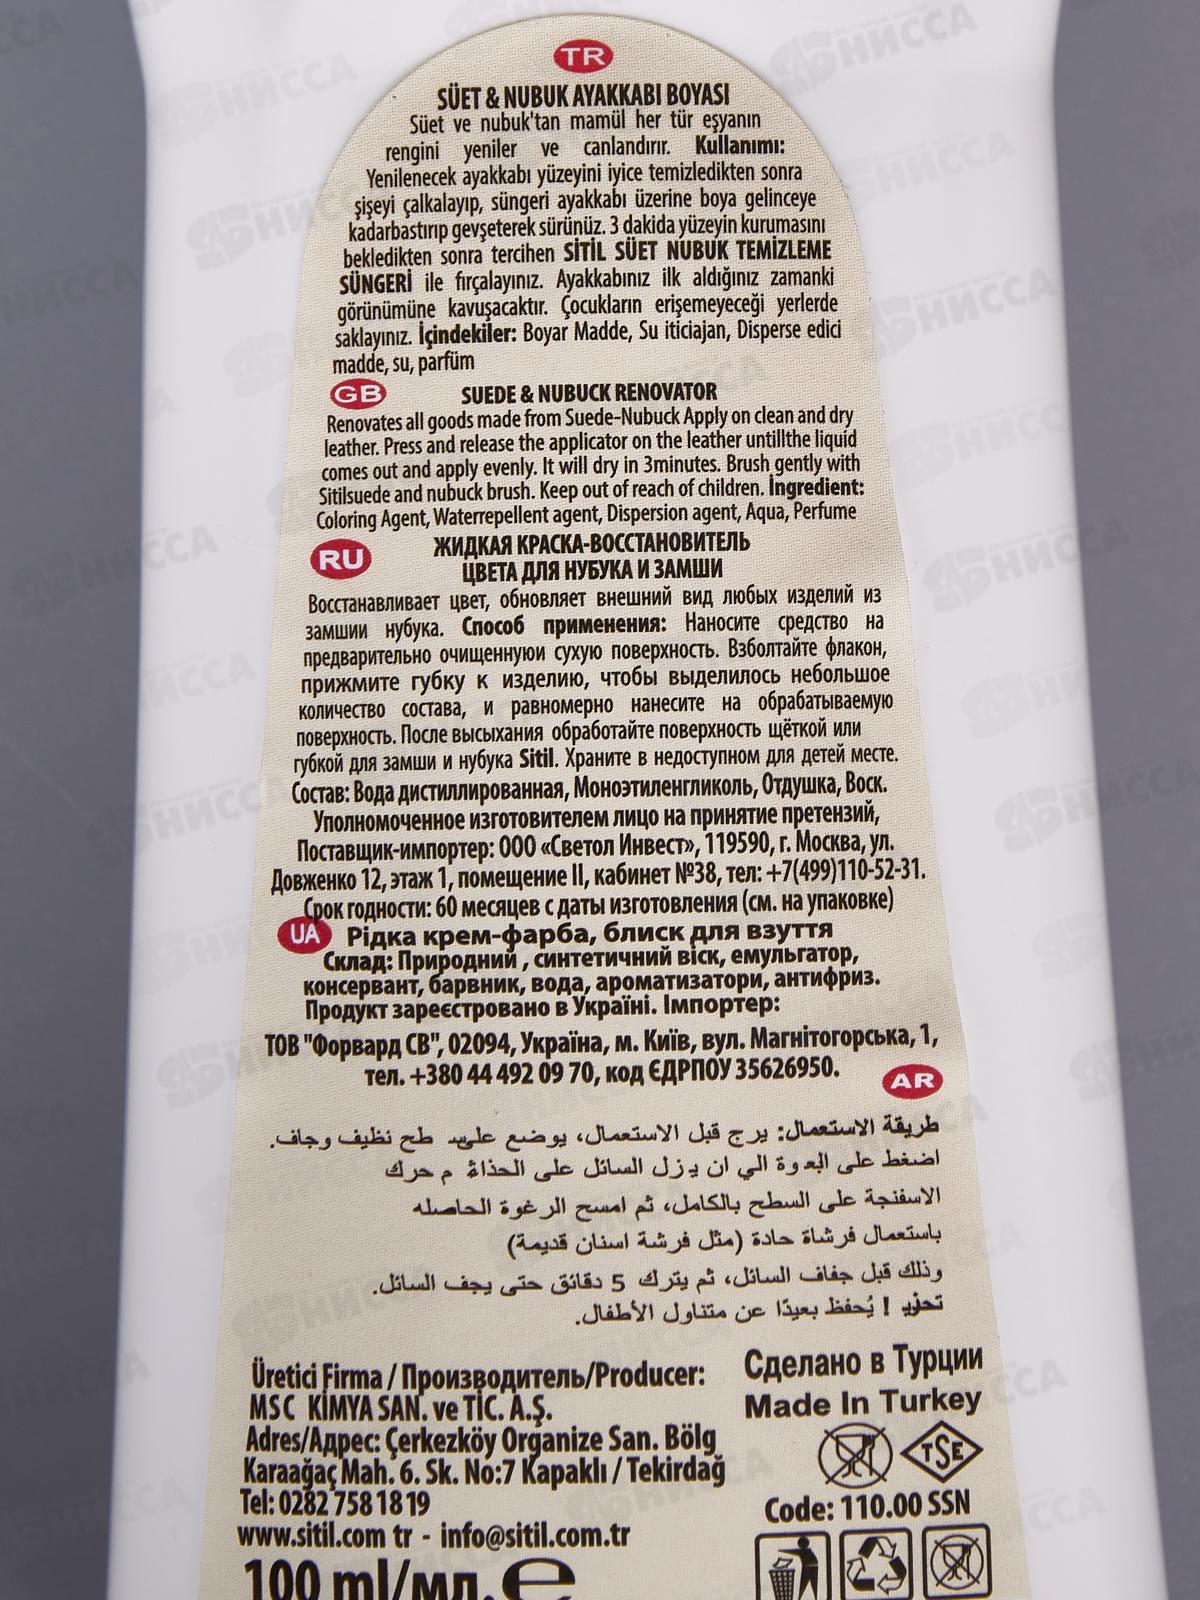 TR
SÜET & NUBUK AYAKKABI BOYASI
Süet ve nubuk'tan mamül her tür eşyanın
rengini yeniler ve canlandırır. Kullanımı:
Yenilenecek ayakkabı yüzeyini iyice temizledikten sonra
şişeyi çalkalayıp, süngeri ayakkabı üzerine boya gelinceye
kadarbastırıp gevşeterek sürünüz. 3 dakida yüzeyin kurumasını
bekledikten sonra tercihen SİTİL SÜET NUBUK TEMİZLEME
SÜNGERİ ile fırçalayınız. Ayakkabınız ilk aldığınız zamanki
görünümüne kavuşacaktır. Çocukların erişemeyeceği yerlerde
saklayınız. İçindekiler: Boyar Madde, Su iticiajan, Disperse edici
madde, su, parfüm
GB SUEDE & NUBUCK RENOVATOR
Renovates all goods made from Suede-Nubuck Apply on clean and dry
leather. Press and release the applicator on the leather untillthe liquid
comes out and apply evenly. It will dry in 3minutes. Brush gently with
Sitilsuede and nubuck brush. Keep out of reach of children. İngredient:
Coloring Agent, Waterrepellent agent, Dispersion agent, Aqua, Perfume
RU ЖИДКАЯ КРАСКА-ВОССТАНОВИТЕЛЬ
ЦВЕТА ДЛЯ НУБУКА И ЗАМШИ
Восстанавливает цвет, обновляет внешний вид любых изделий из
замшии нубука. Способ применения: Наносите средство на
предварительно очищеннуюи сухую поверхность. Взболтайте флакон,
прижмите губку к изделию, чтобы выделилось небольшое
количество состава, и равномерно нанесите на обрабатываемую
поверхность. После высыхания обработайте поверхность щёткой или
губкой для замши и нубука Sitil. Храните в недоступном для детей месте.
Состав: Вода дистиллированная, Моноэтиленгликоль, Отдушка, Воск.
Уполномоченное изготовителем лицо на принятие претензий,
Поставщик-импортер: ООО «Светол Инвест», 119590, г. Москва, ул.
Довженко 12, этаж 1, помещение II, кабинет №38, тел: +7(499)110-52-31.
Срок годности: 60 месяцев с даты изготовления (см. на упаковке)
UA Рідка крем-фарба, блиск для взуття
Склад: Природний , синтетичний віск, емульгатор,
консервант, барвник, вода, ароматизатори, антифриз.
Продукт зареєстровано в Україні. Імпортер:
ТОВ "Форвард СВ", 02094, Україна, м. Київ, вул. Магнітогорська, 1,
тел. +380 44 492 09 70, код ЄДРПОУ 35626950.
AR
طريقة الاستعمال: يرج قبل الاستعمال، يوضع طح نظيف وجاف.
اضغط على الي ان السائل على حرك
الاسفنجة على السطح بالكامل، ثم امسح الرغوة الحاصله
باستعمال فرشاة حادة (مثل فرشة اسنان قديمة)
وذلك قبل جفاف السائل، ثم يترك 5 دقائق حتى يجف السائل.
! يُحفظ بعيدًا عن متناول الأطفال.
Üretici Firma / Производитель/Producer:
MSC KİMYA SAN. ve TİC. A.Ş.
Adres/Адрес: Çerkezköy Organize San. Bölg
Karaağaç Mah. 6. Sk. No:7 Kapaklı / Tekirdağ
Tel: 0282 758 18 19
www.sitil.com tr - info@sitil.com.tr
100 ml/мл. e
Сделано в Турции
Made In Turkey
TSE
Code: 110.00 SSN
НИССА